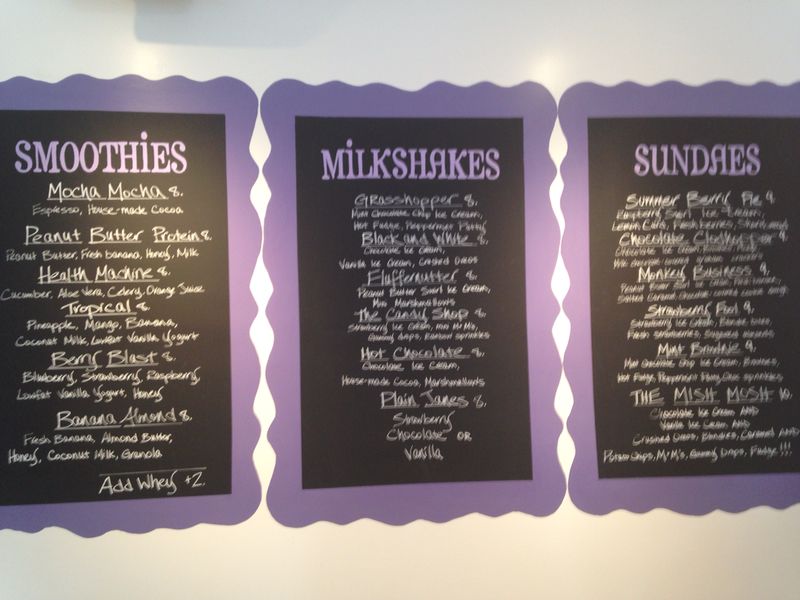 SMOOTHiES
Mocha Mocha 8.
Espresso, House-made Cocoa
Peanut Butter Protein 8.
Peanut Butter, Fresh banana, Honey, Milk
Health Machine 8.
Cucumber, Aloe Vera, Celery, Orange Juice
Tropical 8.
Pineapple, Mango, Banana,
Coconut Milk, Lowfat Vanilla Yogurt
Berry Blast 8.
Blueberry, Strawberry, Raspberry,
Lowfat Vanilla Yogurt, Honey
Banana Almond 8.
Fresh Banana, Almond Butter,
Honey, Coconut Milk, Granola
Add Whey +2.
MiLKSHAKES
Grasshopper 8.
Mint Chocolate Chip Ice Cream,
Hot Fudge, Peppermint Patty
Black and White 8.
Chocolate Ice Cream,
Vanilla Ice Cream, Crushed Oreos
Fluffernutter 8.
Peanut Butter Swirl Ice Cream,
Mini Marshmallows
The Candy Shop 8.
Strawberry Ice Cream, mini M+M's,
Gummy drops, Rainbow sprinkles
Hot Chocolate 8.
Chocolate Ice Cream,
House-made Cocoa, Marshmallows
Plain Janes 8.
Strawberry
Chocolate or
Vanilla
SUNDAES
Summer Berry Pie 9.
Raspberry Swirl Ice Cream,
Lemon Curd, Fresh berries, Shortbread
Chocolate Chodhopper 9.
Chocolate Ice Cream
Milk chocolate covered graham
Monkey Business 9.
Peanut Butter Swirl Ice Cream,
Salted Caramel, Chocolate covered
Strawberry 9.
Strawberry Ice Cream, Blondie bites,
Fresh strawberries, Sugared almonds
Mint Brownie 9.
Mint Chocolate Chip Ice Cream, Brownies,
Hot Fudge, Peppermint Patty, Choc sprinkles
THE MISH MOSH 10.
Chocolate Ice Cream AND
Vanilla Ice Cream AND
Crushed Oreos, Blondies, Caramel AND
Potato Chips, M+M's, Gummy Drops, Fudge!!!